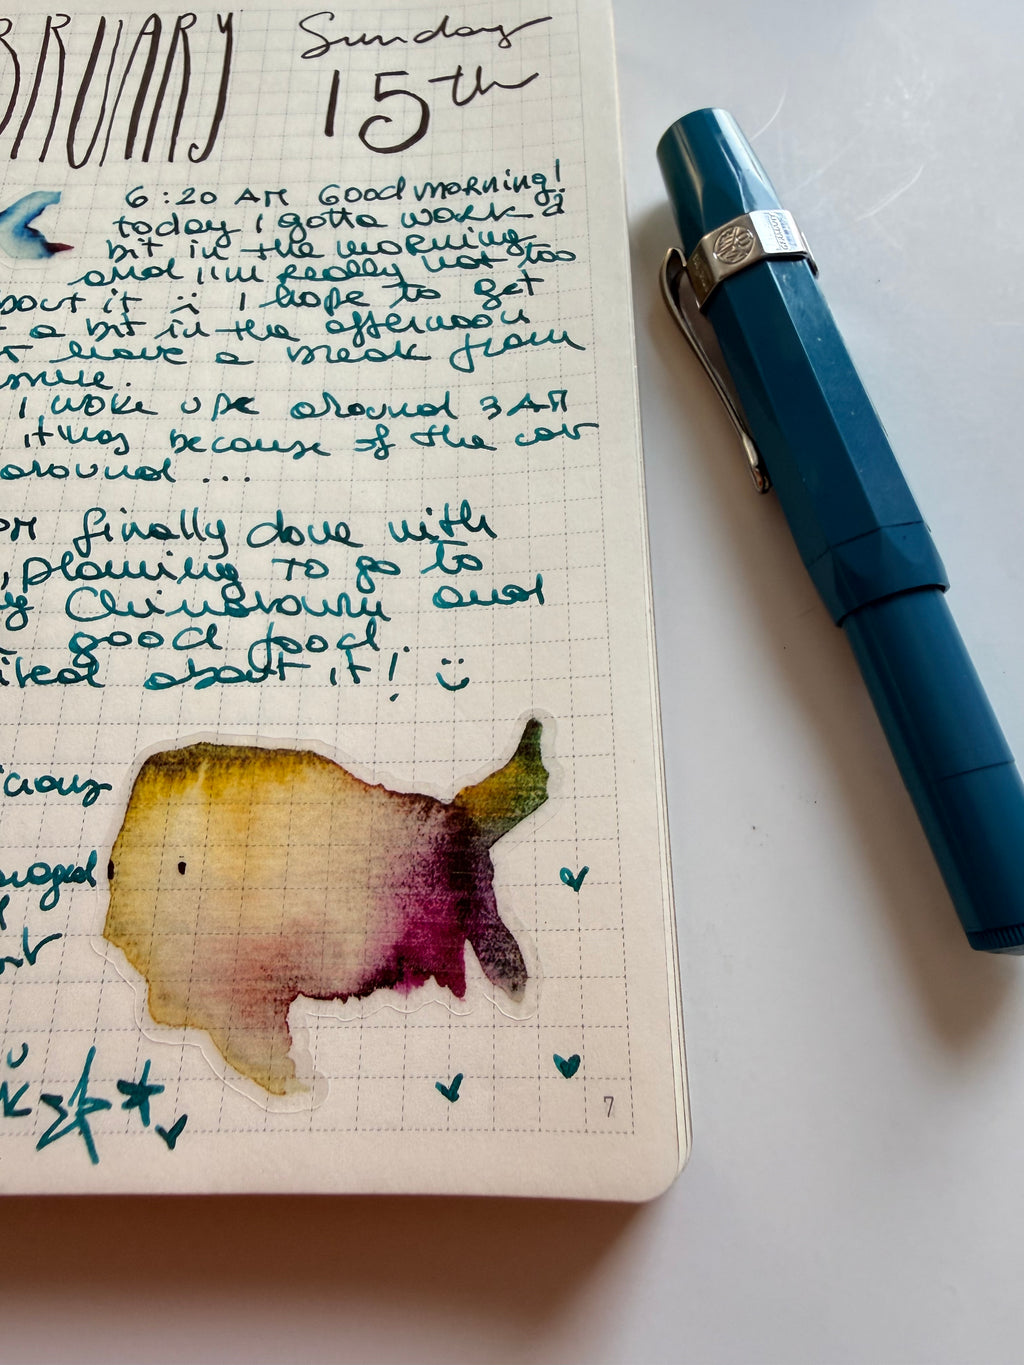 BRUARY
Sunday
15th
6:20 AM Good morning!
today I gotta work a
bit in the morning
and I'm really not too
bout it :( I hope to get
a bit in the afternoon
have a break from
I woke up around 3 AM
it was because of the cat
around...
PM finally done with
, planning to go to
Chinatown and
good food.
ited about it! :)
icious
7